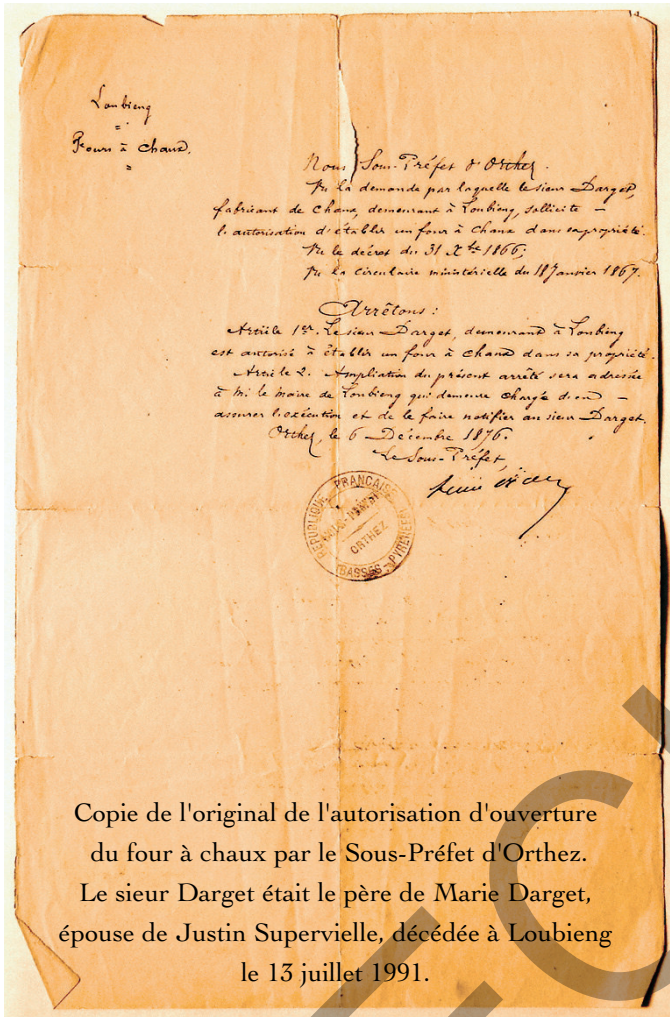 Loubieng
Fours à chaux.
Nous Sous-Préfet d'Orthez.
Vu la demande par laquelle le sieur Darget,
fabricant de chaux, demeurant à Loubieng, sollicite –
l'autorisation d'établir un four à chaux dans sa propriété.
Vu le décret du 31 Xbre 1866;
Vu la circulaire ministérielle du 18 Janvier 1867.
Arrêtons :
Article 1er. Le sieur Darget, demeurant à Loubieng
est autorisé à établir un four à chaux dans sa propriété.
Article 2. Ampliation du présent arrêté sera adressée
à M. le maire de Loubieng qui demeure chargé d'en –
assurer l'exécution et de le faire notifier au sieur Darget.
Orthez, le 6 Décembre 1876.
Le Sous-Préfet,
RÉPUBLIQUE FRANÇAISE
ORTHEZ
BASSES-PYRÉNÉES
Copie de l'original de l'autorisation d'ouverture
du four à chaux par le Sous-Préfet d'Orthez.
Le sieur Darget était le père de Marie Darget,
épouse de Justin Supervielle, décédée à Loubieng
le 13 juillet 1991.